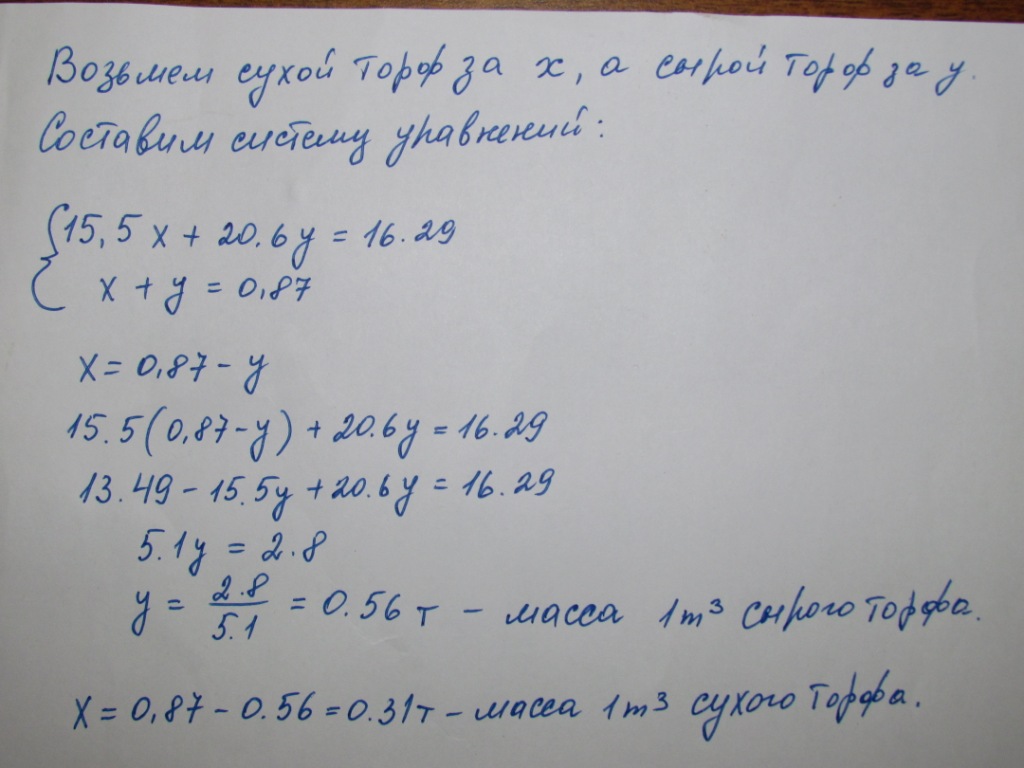 Возьмем сухой торф за x, а сырой торф за y.
Составим систему уравнений:
{15,5 x + 20.6y = 16.29
x + y = 0,87
x = 0,87 - y
15.5(0,87-y) + 20.6y = 16.29
13.49 - 15.5y + 20.6y = 16.29
5.1y = 2.8
y = 2.8/5.1 = 0.56 т - масса 1m³ сырого торфа.
X = 0,87 - 0.56 = 0.31т - масса 1m³ сухого торфа.